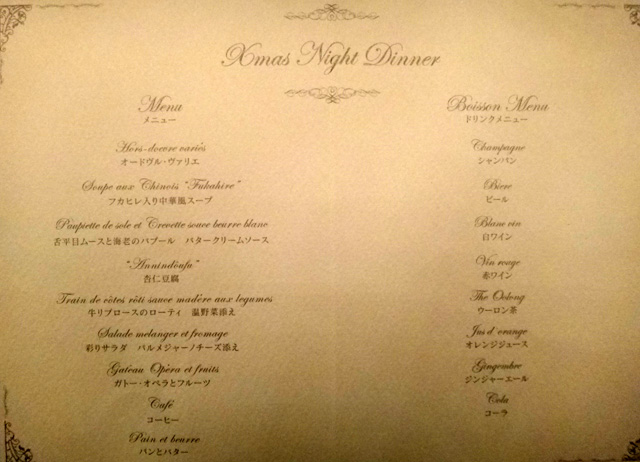 Xmas Night Dinner
Menu
メニュー
Hors-docore variés
オードヴル・ヴァリエ
Soupe aux Chinois "Fukahire"
フカヒレ入り中華風スープ
Paupiette de sole et Crevette souce beurre blanc
舌平目ムースと海老のパプール バタークリームソース
"Annindōufu"
杏仁豆腐
Train de côtes rôti sauce madère aux legumes
牛リブロースのローティ 温野菜添え
Salade melanger et fromage
彩りサラダ パルメジャーノチーズ添え
Gateau Opèra et fruits
ガトー・オペラとフルーツ
Café
コーヒー
Pain et beurre
パンとバター
Boisson Menu
ドリンクメニュー
Champagne
シャンパン
Biere
ビール
Blanc vin
白ワイン
Vin rouge
赤ワイン
The Oolong
ウーロン茶
Jus d'orange
オレンジジュース
Gingembre
ジンジャーエール
Cola
コーラ